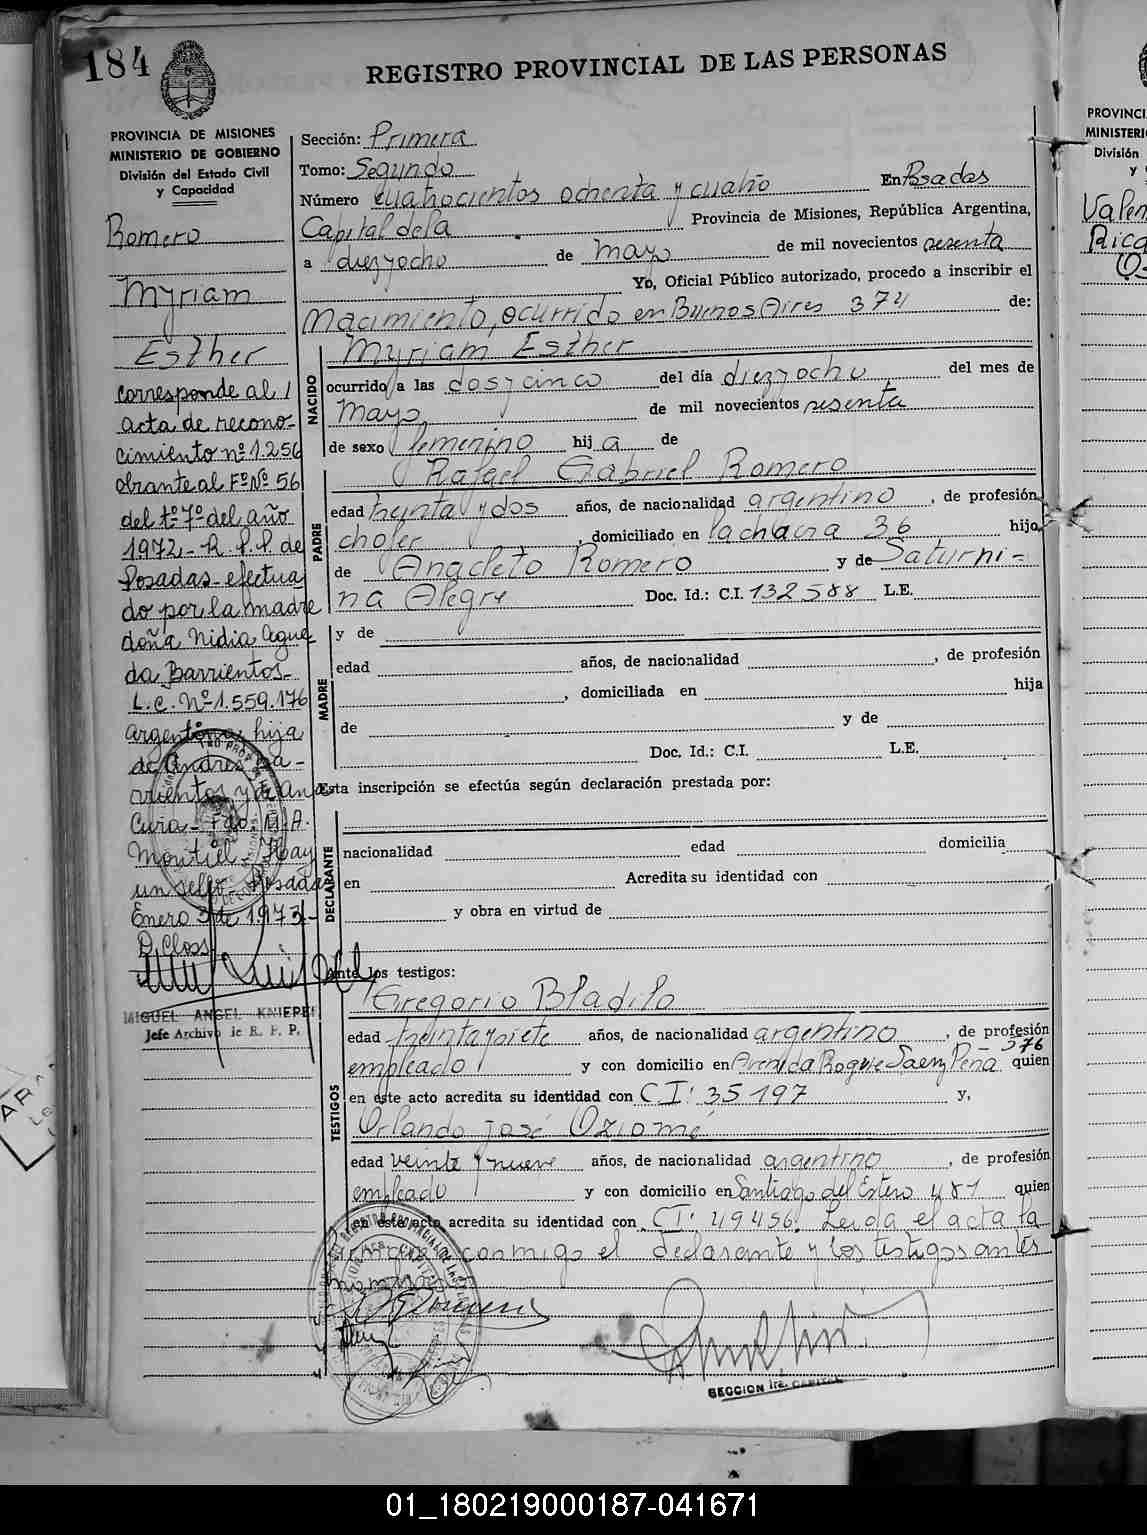 184
REGISTRO PROVINCIAL DE LAS PERSONAS
PROVINCIA DE MISIONES
MINISTERIO DE GOBIERNO
División del Estado Civil
y Capacidad
Romero
Myriam
Esther
corresponde al
acta de recono-
cimiento nº 1.256
obrante al Fº Nº 56
del tº 7º del año
1972 - R. P. P. de
Posadas - efectua
do por la madre
doña Nidia Ague
da Barrientos -
L.C. Nº 1.559.176
argentina hija
de Andrés Ba-
rrientos y de Ana
Cura - Fdo. M. A.
Montiel - Hay
un sello - Posadas
Enero 3 de 1973 -
D. Closs
MIGUEL ANGEL KNIEPE
Jefe Archivo de R. P. P.
Sección: Primera
Tomo: Segundo
Número cuatrocientos ochenta y cuatro En Posadas
Capital de la Provincia de Misiones, República Argentina,
a diezyocho de mayo de mil novecientos sesenta
Yo, Oficial Público autorizado, procedo a inscribir el
Nacimiento, ocurrido en Buenos Aires 374 de:
NACIDO
Myriam Esther
ocurrido a las dos y cinco del día diezyocho del mes de
mayo de mil novecientos sesenta
de sexo femenino hija de
PADRE
Rafael Gabriel Romero
edad treinta y dos años, de nacionalidad argentino, de profesión
chofer, domiciliado en la chacra 36 hijo
de Anacleto Romero y de Saturni-
na Alegre Doc. Id.: C.I. 132588 L.E.
MADRE
y de
edad años, de nacionalidad , de profesión
, domiciliada en hija
de y de
Doc. Id.: C.I. L.E.
Esta inscripción se efectúa según declaración prestada por:
DECLARANTE
nacionalidad edad domicilia
en Acredita su identidad con
y obra en virtud de
Ante los testigos:
TESTIGOS
Gregorio Bladilo
edad treinta y siete años, de nacionalidad argentino, de profesión
empleado y con domicilio en Avenida Roque Saenz Peña 376 quien
en este acto acredita su identidad con CI: 35197 y,
Orlando José
edad veinte y nueve años, de nacionalidad argentino, de profesión
empleado y con domicilio en Santiago del Estero 487 quien
en este acto acredita su identidad con CI: 49456. Leída el acta la
conmigo el declarante y los testigos antes
SECCION 1ra. CAPITAL
PROVINCI
MINISTERI
División
y
Valen
Rica
01_180219000187-041671